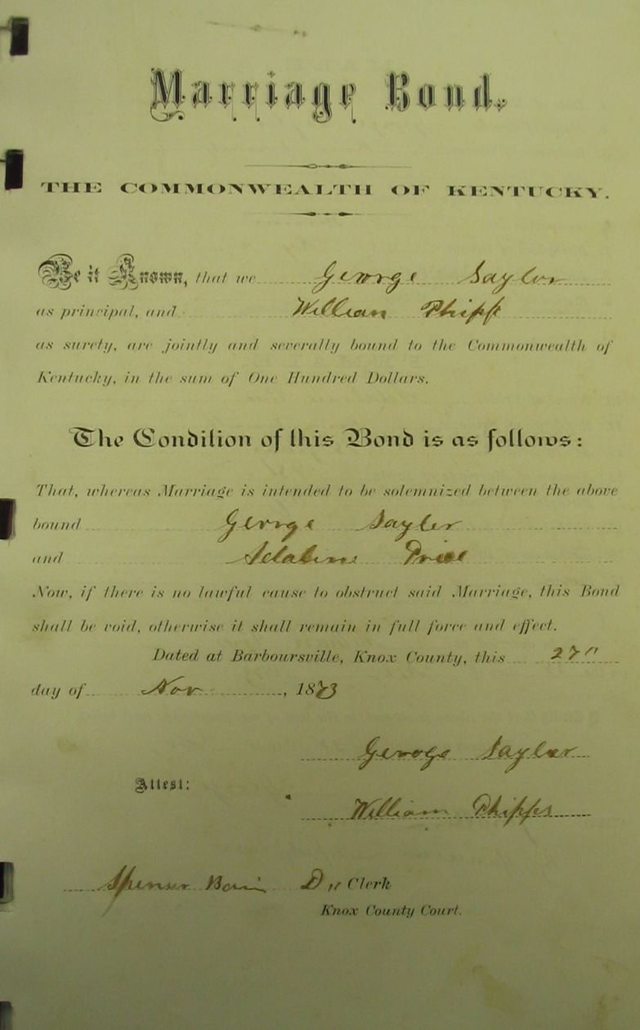 Marriage Bond.
THE COMMONWEALTH OF KENTUCKY.
Be it Known, that we George Saylor
as principal, and William Phipps
as surety, are jointly and severally bound to the Commonwealth of
Kentucky, in the sum of One Hundred Dollars.
The Condition of this Bond is as follows:
That, whereas Marriage is intended to be solemnized between the above
bound George Saylor
and Adaline Price
Now, if there is no lawful cause to obstruct said Marriage, this Bond
shall be void, otherwise it shall remain in full force and effect.
Dated at Barboursville, Knox County, this 27"
day of Nov, 1873
George Saylor
Attest:
William Phipps
Spenser D" Clerk
Knox County Court.